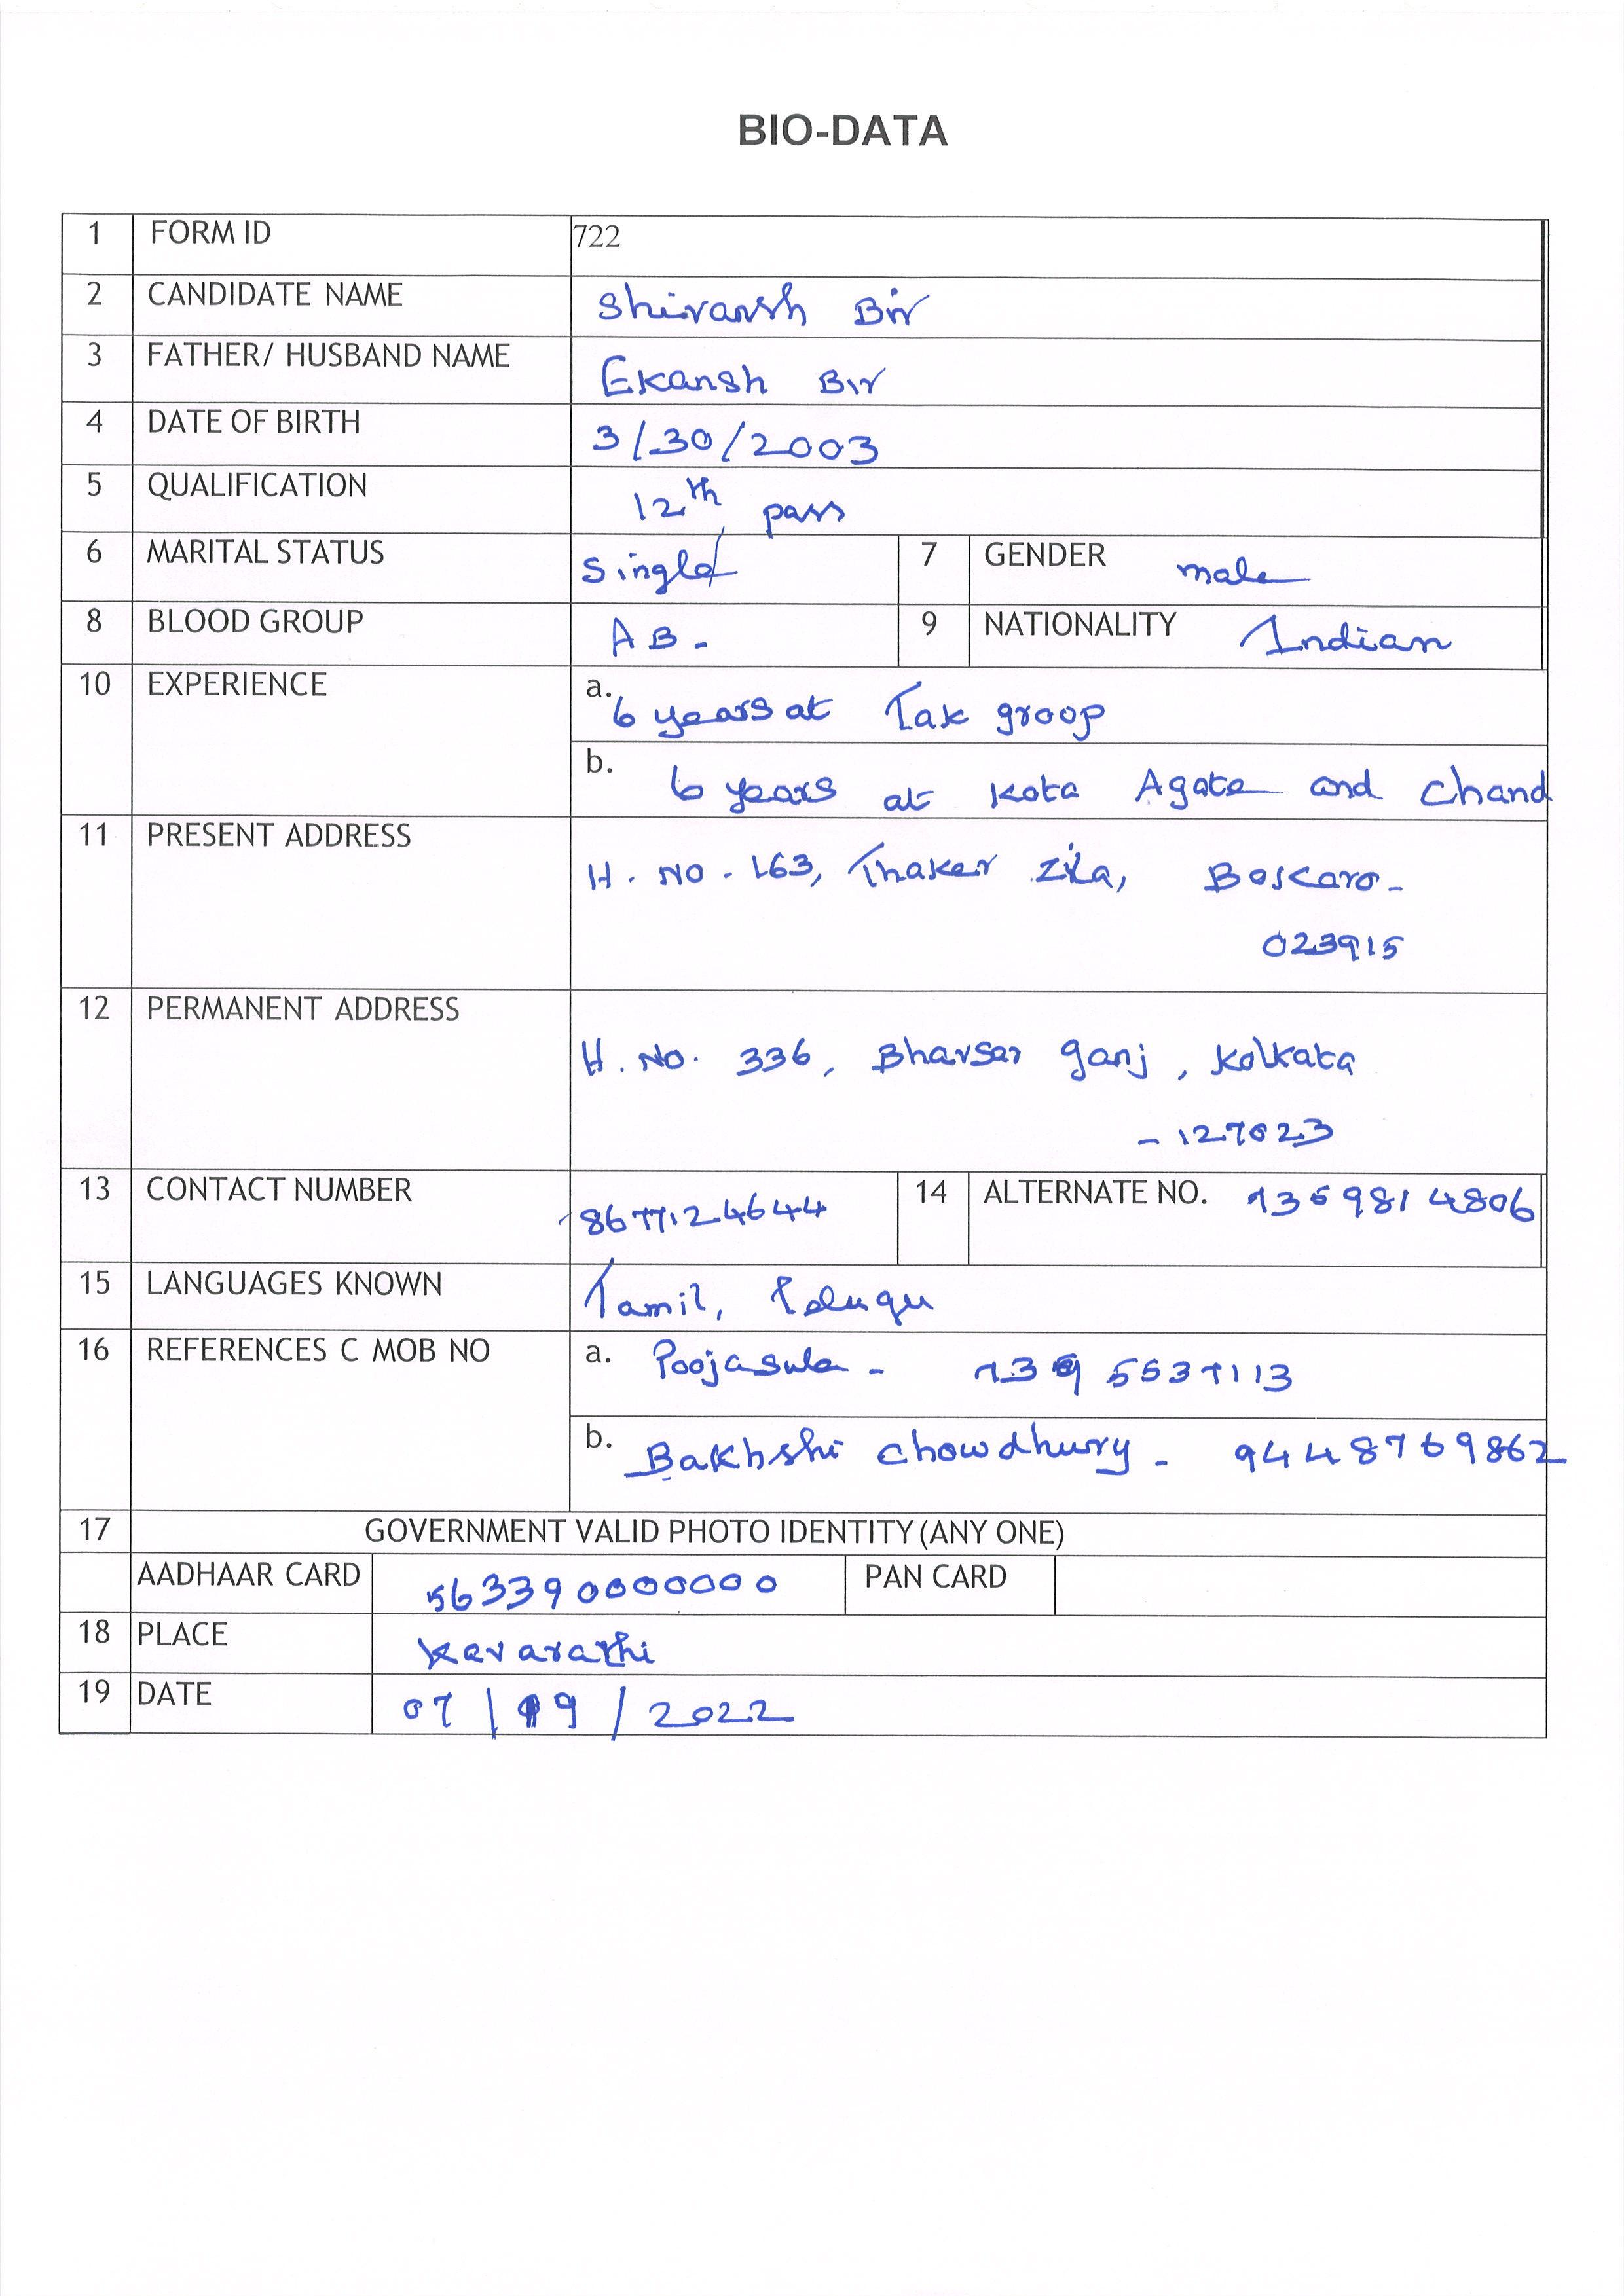 BIO-DATA
1 FORM ID 722
2 CANDIDATE NAME Shivansh Bir
3 FATHER/ HUSBAND NAME Ekansh Bir
4 DATE OF BIRTH 3/30/2003
5 QUALIFICATION 12th pass
6 MARITAL STATUS Single 7 GENDER male
8 BLOOD GROUP AB- 9 NATIONALITY Indian
10 EXPERIENCE a. 6 years at Tak groop
b. 6 years at Kota Agate and Chand
11 PRESENT ADDRESS H. No - 163, Thaker Zila, Boskaro-
023915
12 PERMANENT ADDRESS H. No. 336, Bhavsar ganj, Kolkata
- 127023
13 CONTACT NUMBER 8677124644 14 ALTERNATE NO. 7359814806
15 LANGUAGES KNOWN Tamil, Telugu
16 REFERENCES C MOB NO a. Pooja Sula - 7395537113
b. Bakhshi Chowdhury - 9448769862
17 GOVERNMENT VALID PHOTO IDENTITY (ANY ONE)
AADHAAR CARD 563390000000 PAN CARD
18 PLACE Kavarathi
19 DATE 07/19/2022